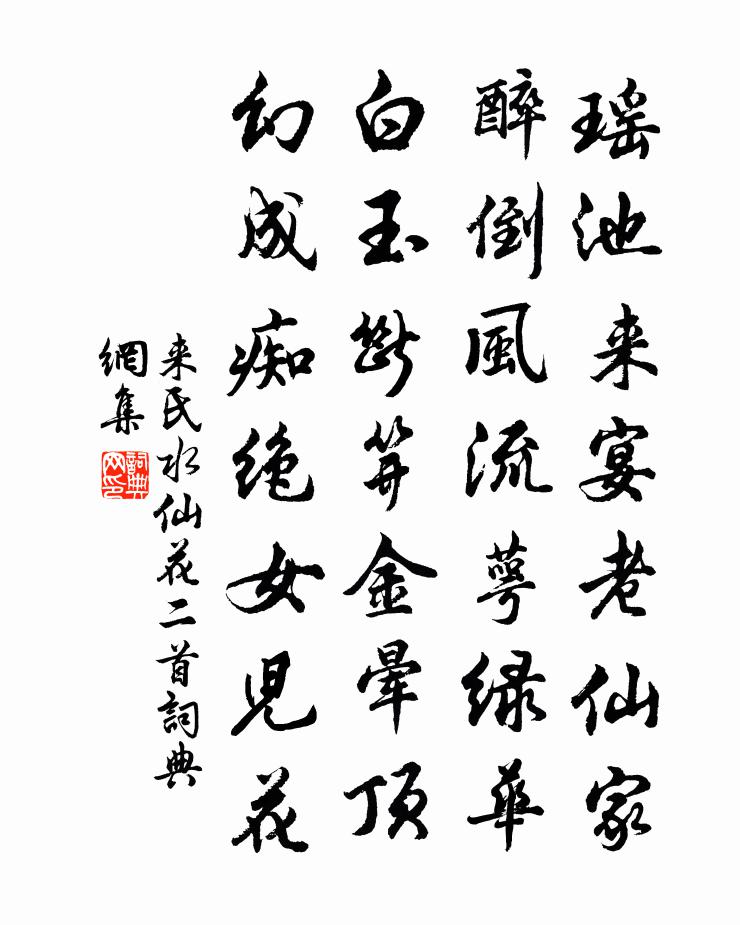 瑶池来宴老仙家
醉倒風流萼绿華
白玉断笄金暈頂
幻成痴绝女児花
来氏水仙花二首詞典
網集
詞典
网印